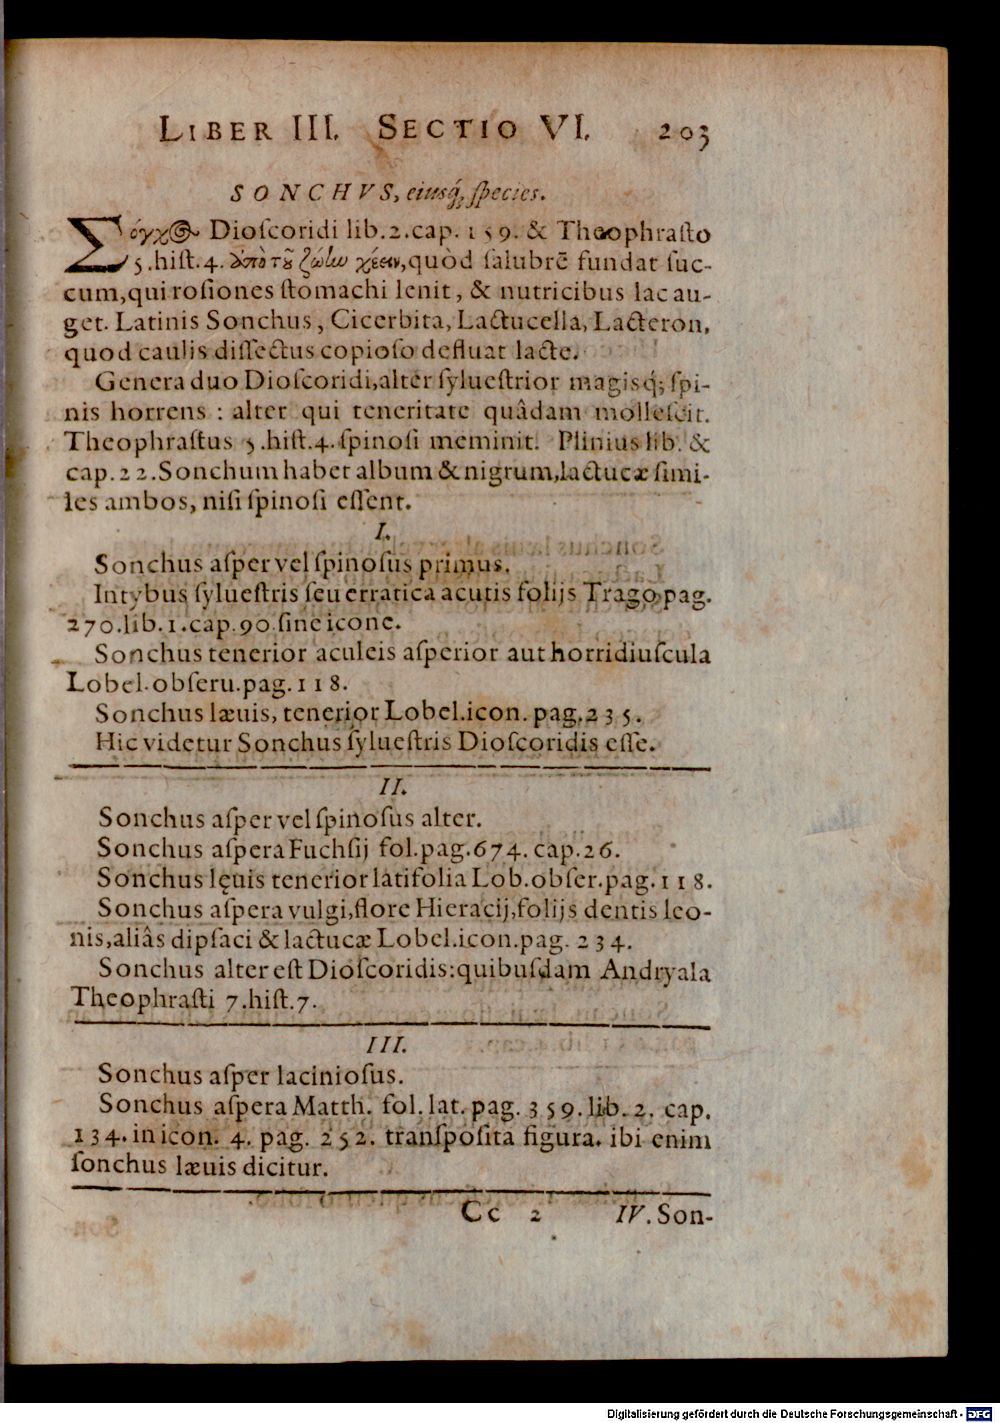 LIBER III. SECTIO VI. 203
SONCHVS, eiusq́; ſpecies.
Σόγχος Dioſcoridi lib.2.cap.159. & Theophraſto
5.hiſt.4. ἀπὸ τοῦ ζώων χέειν, quòd ſalubrẽ fundat ſuc-
cum, qui roſiones ſtomachi lenit, & nutricibus lac au-
get. Latinis Sonchus, Cicerbita, Lactucella, Lacteron,
quod caulis diſſectus copioſo defluat lacte.
Genera duo Dioſcoridi, alter ſylueſtrior magisq́; ſpi-
nis horrens: alter qui teneritate quâdam molleſcit.
Theophraſtus 5.hiſt.4. ſpinoſi meminit. Plinius lib. &
cap.22. Sonchum habet album & nigrum, lactucæ ſimi-
les ambos, niſi ſpinoſi eſſent.
I.
Sonchus aſper vel ſpinoſus primus.
Intybus ſylueſtris ſeu erratica acutis folijs Trago, pag.
270.lib.1.cap.90 ſine icone.
Sonchus tenerior aculeis aſperior aut horridiuſcula
Lobel.obſeru.pag.118.
Sonchus læuis, tenerior Lobel.icon.pag.235.
Hic videtur Sonchus ſylueſtris Dioſcoridis eſſe.
II.
Sonchus aſper vel ſpinoſus alter.
Sonchus aſpera Fuchſij fol.pag.674. cap.26.
Sonchus lęuis tenerior latifolia Lob.obſer.pag.118.
Sonchus aſpera vulgi, flore Hieracij, folijs dentis leo-
nis, aliâs dipſaci & lactucæ Lobel.icon.pag. 234.
Sonchus alter eſt Dioſcoridis: quibuſdam Andryala
Theophraſti 7.hiſt.7.
III.
Sonchus aſper lacinioſus.
Sonchus aſpera Matth. fol. lat. pag. 359. lib. 2. cap.
134. in icon. 4. pag. 252. tranſpoſita figura. ibi enim
ſonchus læuis dicitur.
Cc 2 IV. Son-
Digitalisierung gefördert durch die Deutsche Forschungsgemeinschaft - DFG